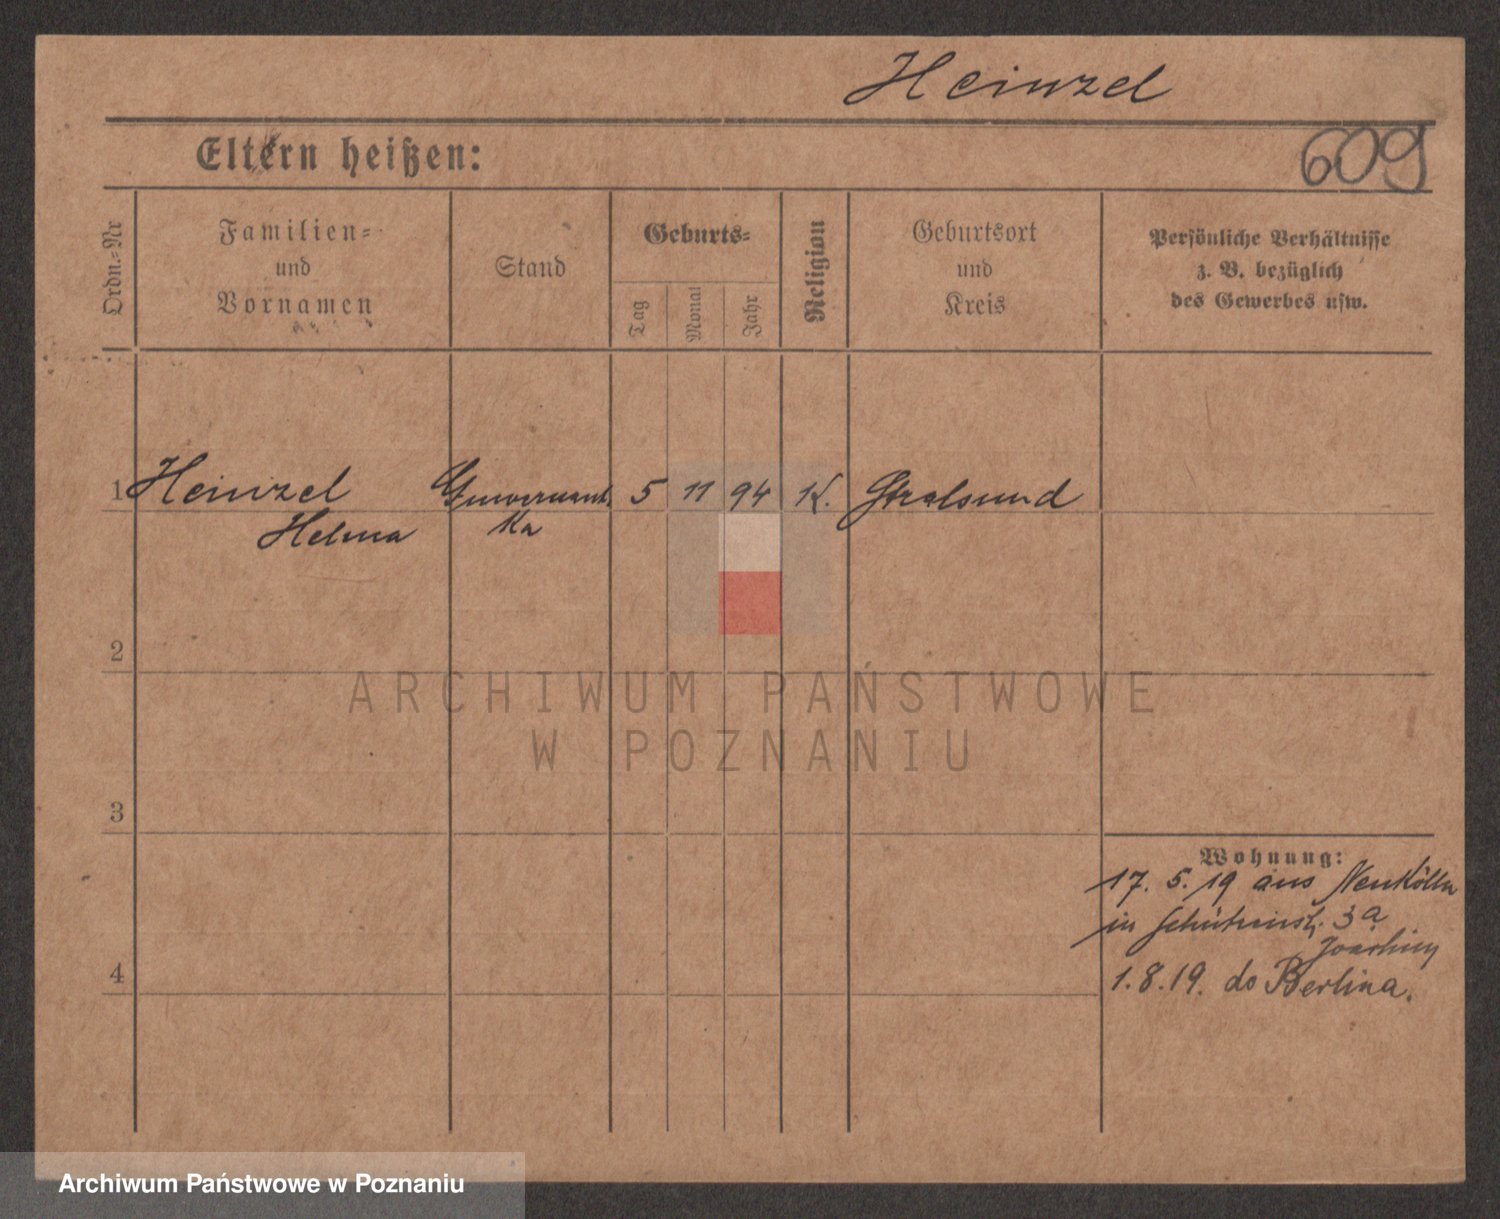 Heinzel
Eltern heißen:
609
Ordn.-Nr
Familien-
und
Vornamen
Stand
Geburts-
Tag
Monat
Jahr
Religion
Geburtsort
und
Kreis
Persönliche Verhältnisse
z. B. bezüglich
des Gewerbes usw.
1 Heinzel Guvernant. 5 11 94 K. Stralsund
Helma ka
2
ARCHIWUM PAŃSTWOWE
W POZNANIU
3
Wohnung:
17. 5. 19 aus Neukölln
in Schützenstr. 3a
Joachim
4
1. 8. 19. do Berlina.
Archiwum Państwowe w Poznaniu